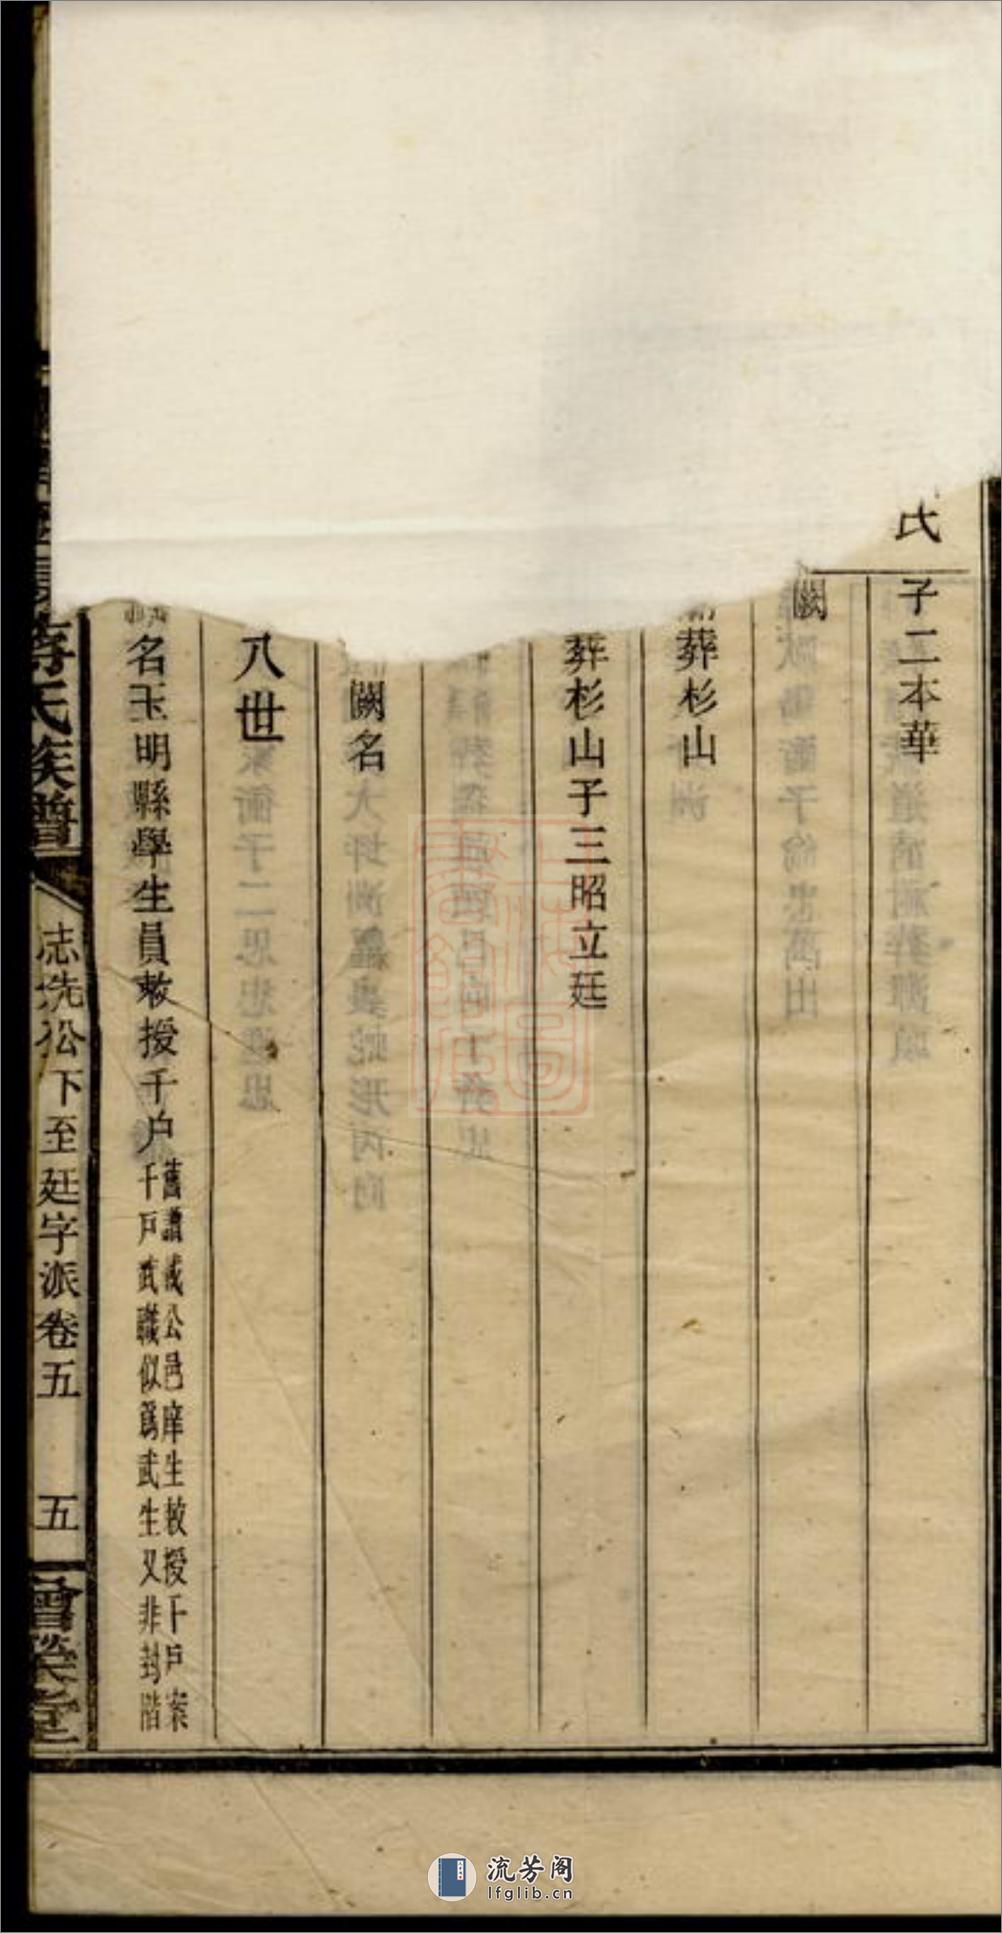 氏
子二本華
闕
葬杉山
葬杉山子三昭立廷
闕名
八世
名玉明縣學生員敕授千户
舊譜載公邑庠生敕授千户案
千户武職似爲武生又非封階
蔣氏族譜
志先公下至廷字派卷五
五
曾榮堂
流芳阁
lfglib.cn